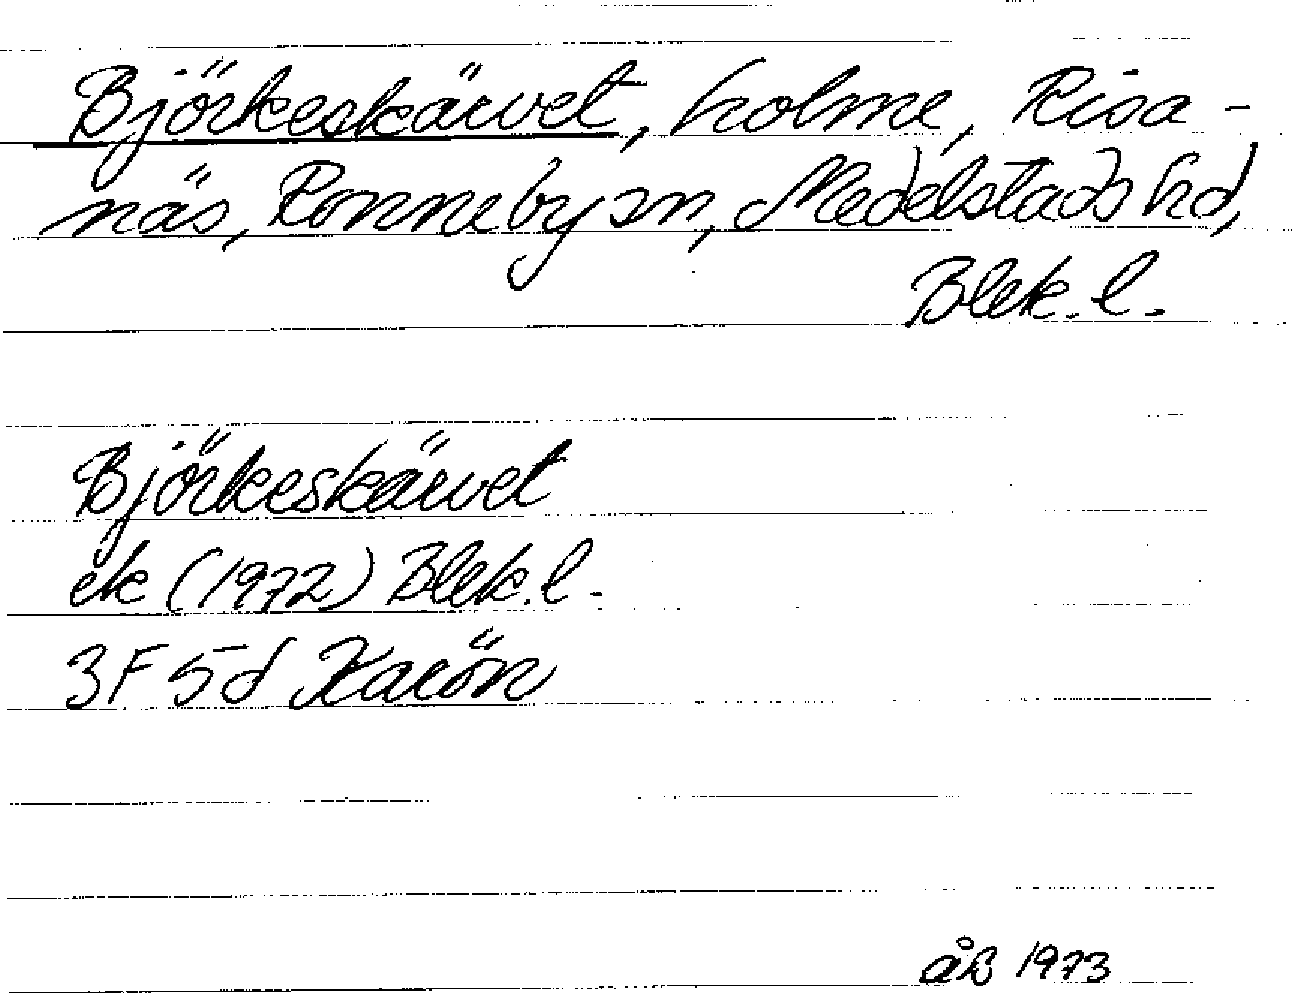 Björkeskärvet, holme, Risa-
näs, Ronneby sn, Medelstads hd,
Blek. l.
Björkeskärvet
ek (1972) Blek. l.
3F 5d Karön
åB 1973